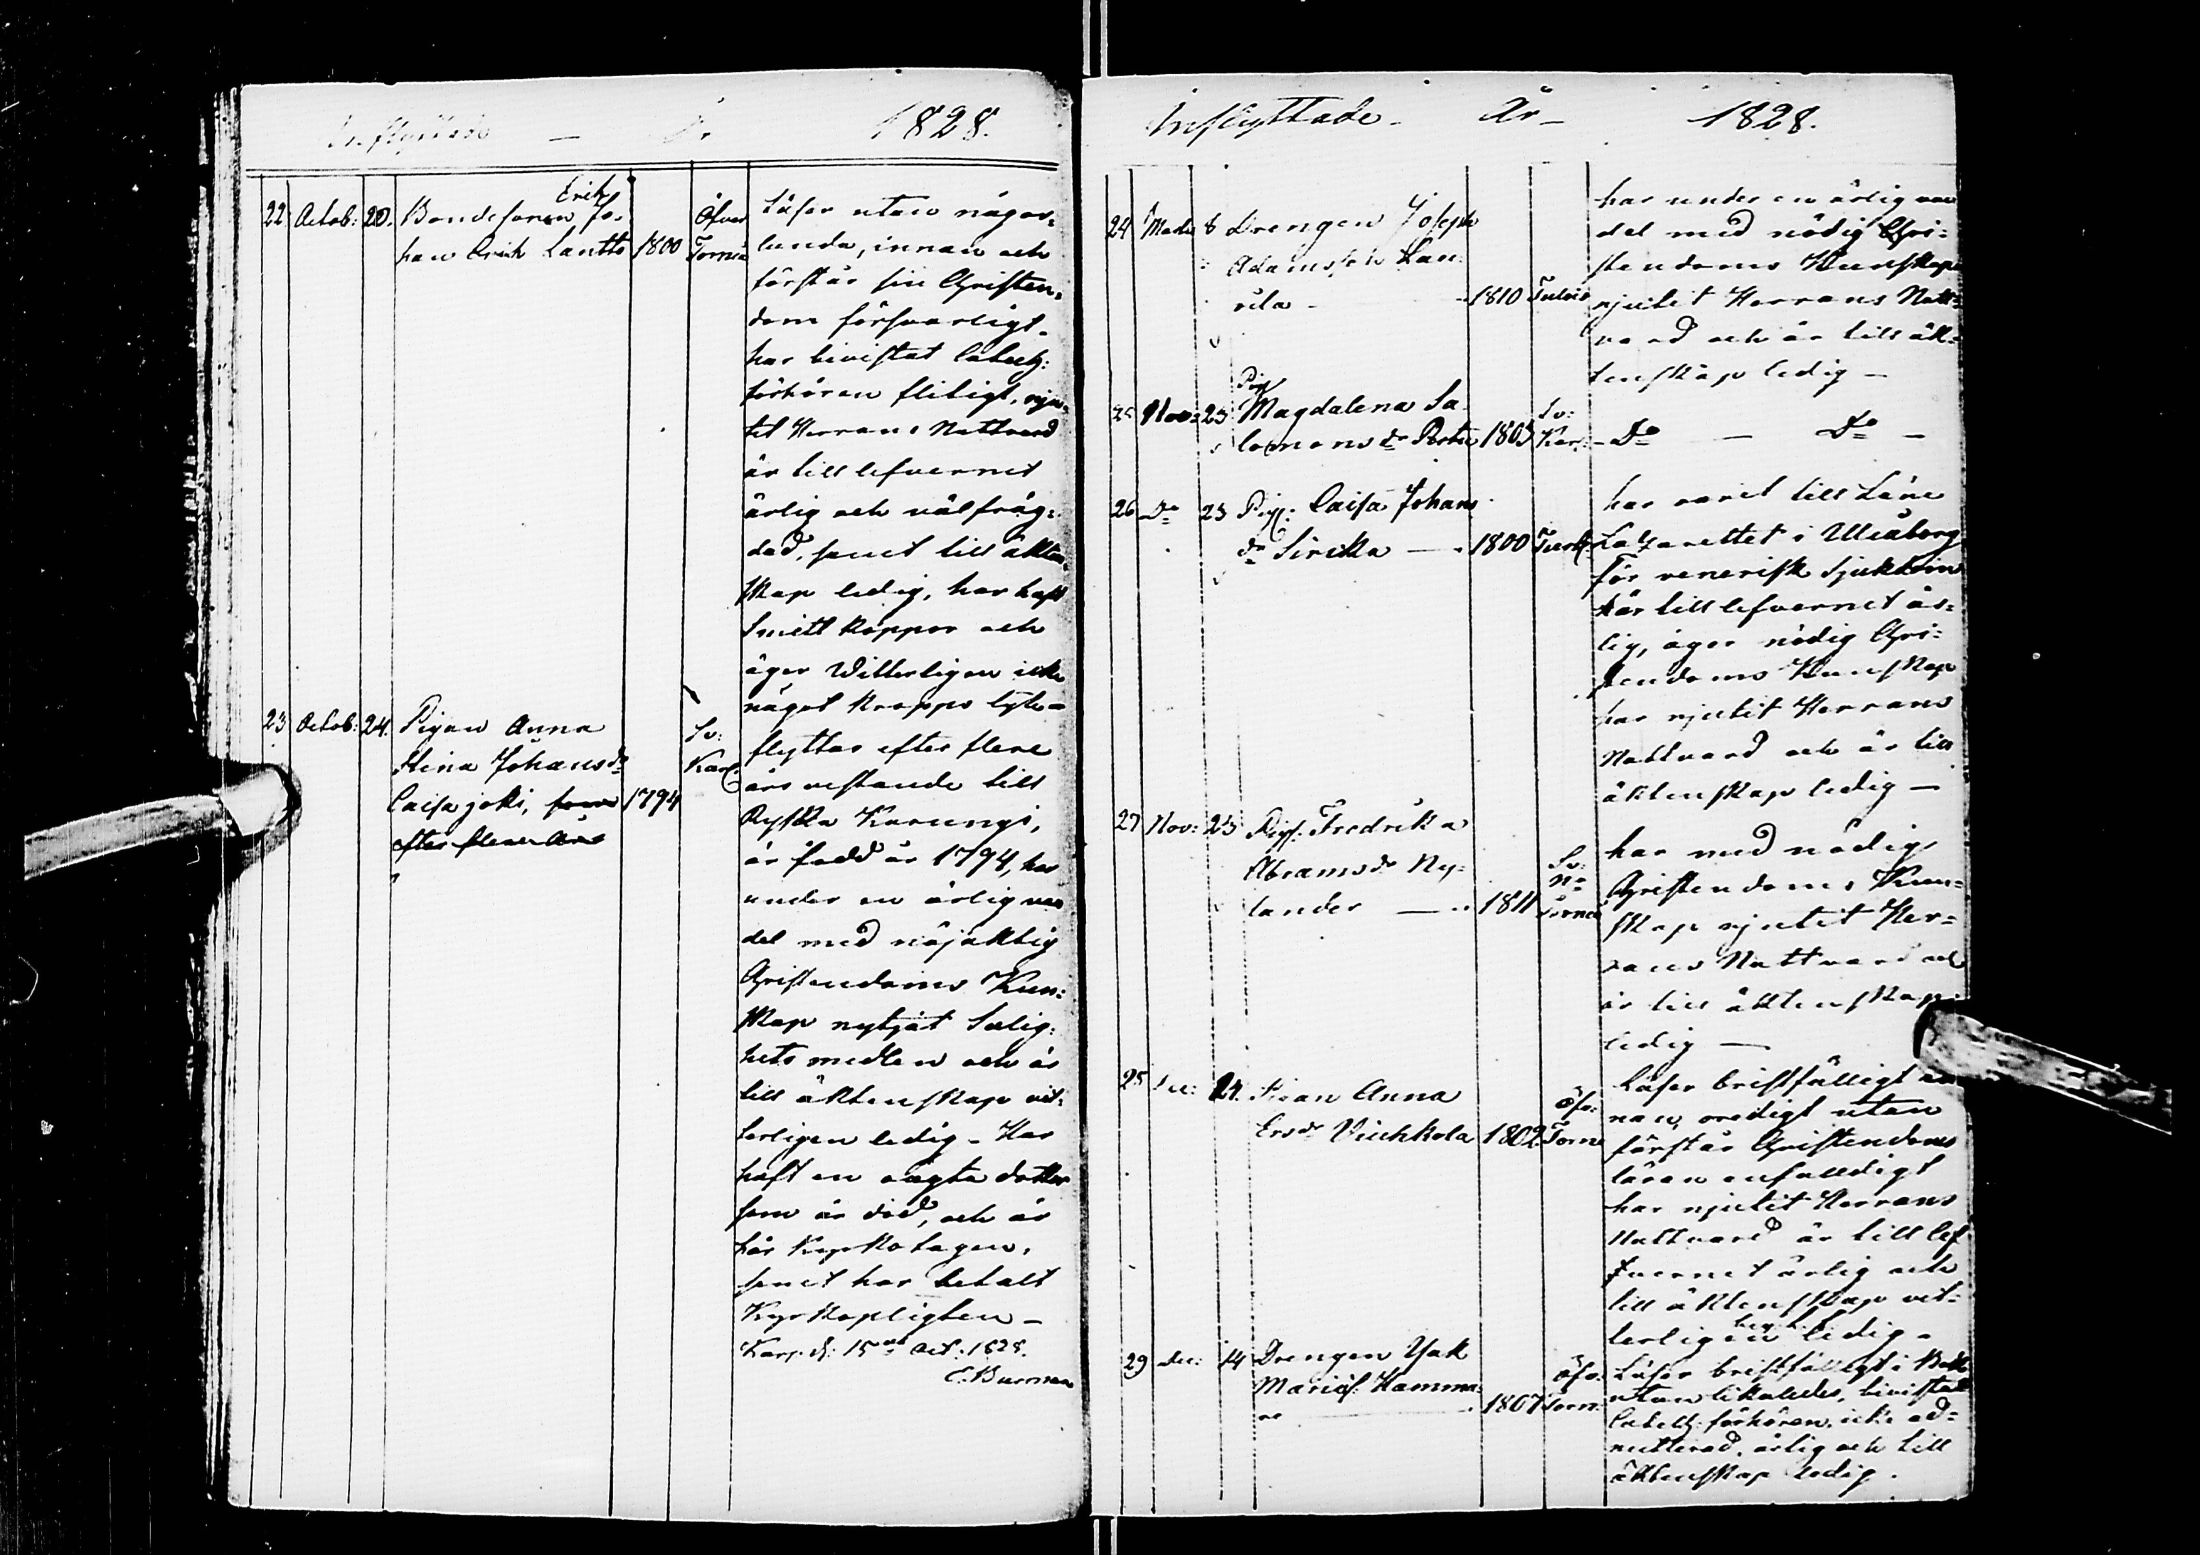 Inflyttade — År 1828.
22 Octob: 20. Bondesonen Jo-
Erik
han Erik Lantto 1800 Öfver Torneå
Läser utan någor-
lunda, innan och
förstår sin Christen-
dom försvarligt.
har bivistat Catech:
förhören flitigt, nju-
tit Herrans Nattvard
är till lefvernet
ärlig och välfräg-
dad, samt till äkten-
skap ledig, har haft
Smittkoppor och
äger Witterligen icke
något kropps lyte —
23 Octob: 24. Pigan Anna
Stina Johansdr
Caisajoki, som 1794
efter flera års
Sv: Karl:
flyttar efter flere
års vistande till
Ryska Karungi,
är född år 1794, har
under en ärlig van
del med nöjaktig
Christendoms Kun-
skap nytjat Salig-
hets medlen och är
till äktenskap vit-
terligen ledig — Har
haft en oägta dotter
som är död, och är
här Kyrkotagen,
samt har betalt
Kyrkopligten —
Karg. d: 15de Oct. 1828.
C. Burman
Inflyttade — År — 1828.
24 8 Drengen Joseph
Adamsson Lau-
rila — 1810 Tulois
har under en ärlig van
del med nödig Chri-
stendoms Kunskap
njutit Herrans Natt-
vard och är till äk-
tenskap ledig —
25 Nov: 23 Pig: Magdalena Sa-
lomonsdr 1803 Sv: Kar: — Do — Do —
26 Do 23 Pig: Caisa Johans
dr Sirkka — 1800 Turt:
har varit till Läns
Lazarettet i Uleåborg
för venerisk Sjukdom
är till lefvernet är-
lig, äger nödig Chri-
stendoms Kunskap
har njutit Herrans
Nattvard och är till
äktenskap ledig —
27 Nov: 23 Pig: Fredrika
Abramsdr Ny-
lander — 1811 Sv: Nr Torneå
har med nödig
Christendoms Kun-
skap njutit Her-
rans Nattvard och
är till äktenskap
ledig —
28 Dec: 14. Pigan Anna
Ersdr Viuhkola 1802 Öfv: Torne
Läser bristfälligt in
nan, oredigt utan
förstår Christendoms
läran enfaldigt
har njutit Herrans
Nattvard är till lef
vernet ärlig och
till äktenskap vit-
terligen ledig —
29 Dec: 14 Drengen Isak
Mariæs: Hamma-
re — 1807 Öfv: Torn:
Läser bristfälligt i Bok
utan likaledes, bivistat
Catech: förhören, icke ad-
mitterad, ärlig och till
äktenskap ledig.